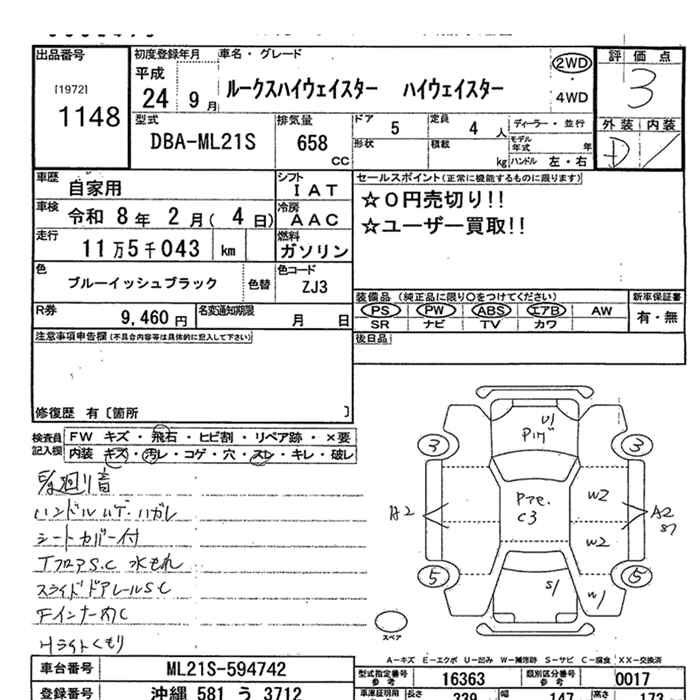 出品番号
[1972]
1148
初度登録年月
平成
24 9月
車名・グレード
ルークスハイウェイスター ハイウェイスター
2WD
4WD
評価点
3
外装 内装
D /
型式
DBA-ML21S
排気量
658 cc
ドア
5
定員
4 人
ディーラー・並行
形状
積載
kg
モデル年式 年
ハンドル 左・右
車歴
自家用
シフト
IAT
車検
令和 8年 2月( 4日)
冷房
AAC
走行
11万5千043 km
燃料
ガソリン
色
ブルーイッシュブラック
色替
色コード
ZJ3
R券
9,460円
名変通知期限
月 日
セールスポイント(正常に機能するものに限ります)
☆0円売切り!!
☆ユーザー買取!!
装備品 (純正品に限り○をつけてください)
PS PW ABS エアB AW
SR ナビ TV カワ
新車保証書
有・無
後日品
注意事項申告欄(不具合内容等は具体的に記入して下さい)
修復歴 有〔箇所 〕
検査員記入欄
FW キズ・飛石・ヒビ割・リペア跡・×要
内装 キズ・汚レ・コゲ・穴・スレ・キレ・破レ
ハンドルハゲ・ハガレ
シートカバー付
TフロアS.C 水もれ
スライドドアレールSC
Hライトくもり
3
3
U1
A2
C3
W2
A2
W2
5
5
S1
W1
スペア
A-キズ E-エクボ U-凹み W-補修跡 S-サビ C-腐食 XX-交換済
車台番号
ML21S-594742
登録番号
沖縄 581 う 3712
型式指定番号
参考
16363
類別区分番号
参考
0017
長さ
339
幅
147
高さ
173